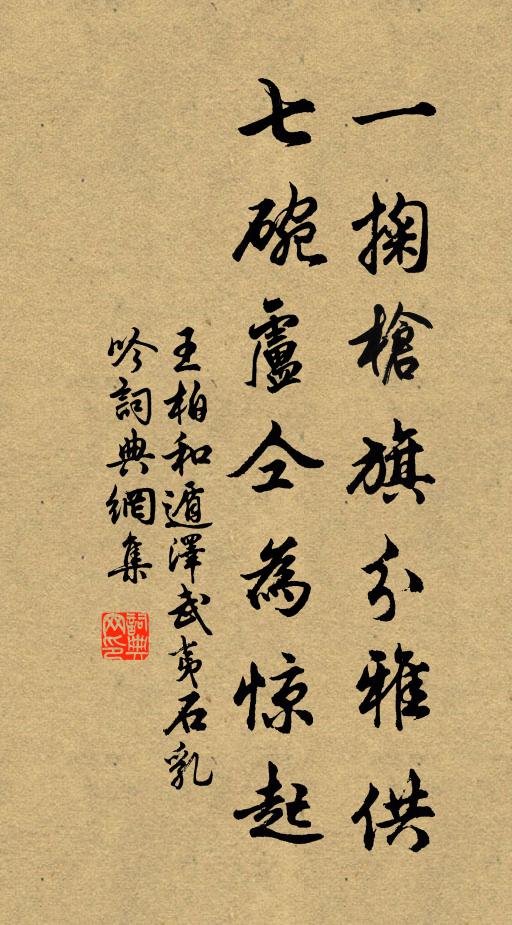 一掬槍旗分雅供
七碗盧仝為惊起
王柏和遁澤武夷石乳
吟詞典網集
詞典網印